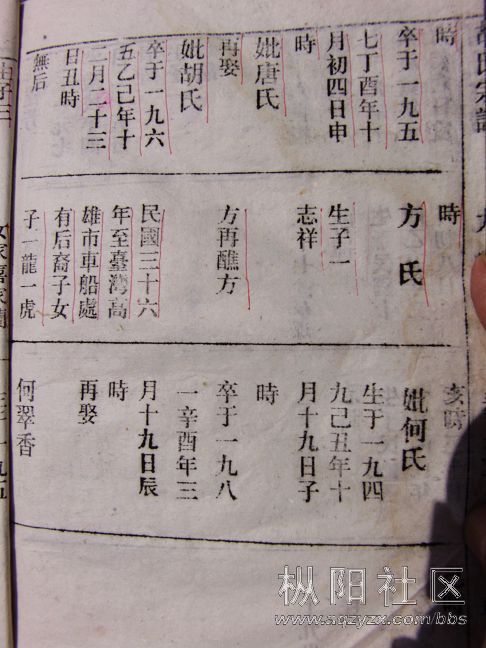 時
卒于一九五
七丁酉年十
月初四日申
時
妣唐氏
再娶
妣胡氏
卒于一九六
五乙己年十
二月二十三
日丑時
無后
時
方氏
生子一
志祥
方再醮方
民國三十六
年至臺灣高
雄市車船處
有后裔子女
子一龍一虎
亥時
妣何氏
生于一九四
九己丑年十
月十九日子
時
卒于一九八
一辛酉年三
月十九日辰
時
再娶
何翠香
枞阳社区
www.aqzyzx.com/bbs